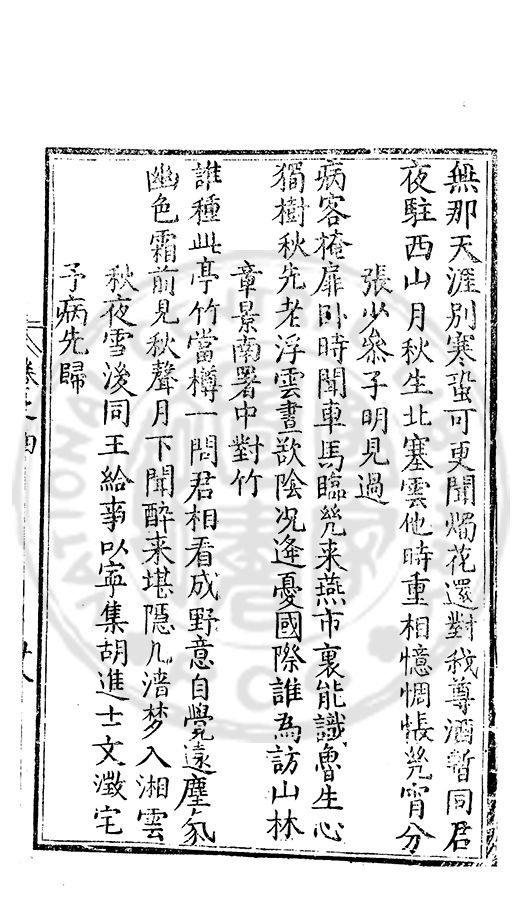 無那天涯別寒蛩可更聞燭花還對我尊酒暫同君
夜駐西山月秋生北塞雲他時重相憶惆悵幾宵分
張少叅子明見過
病客掩扉卧時聞車馬臨幾来燕市裏能識魯生心
獨樹秋先老浮雲晝欲陰况逢憂國際誰為訪山林
章景南署中對竹
誰種此亭竹當樽一問君相看成野意自覺遠塵氛
幽色霜前見秋聲月下聞醉来堪隱几清梦入湘雲
秋夜雪後同王給事以寧集胡進士文澂宅
予病先歸
卷之四